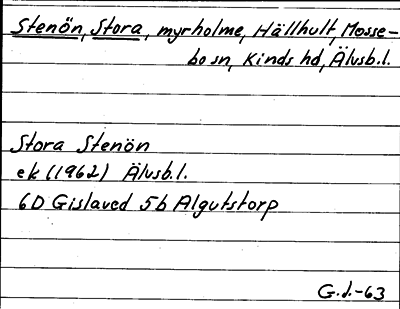 Stenön, Stora, myrholme, Hällhult, Mosse-
bo sn, Kinds hd, Älvsb.l.
Stora Stenön
ek (1962) Älvsb.l.
6D Gislaved 5b Algutstorp
G.J.-63